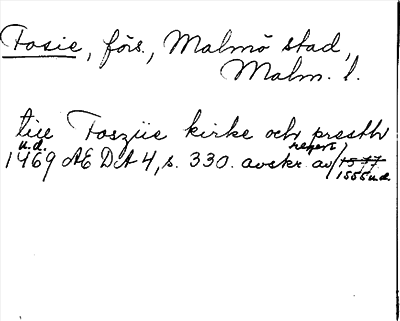 Fosie, förs., Malmö stad,
Malm. l.
till Fosziie kirke och prestth
u.d.
1469 AE DA 4, s. 330. avskr. av (regest) 1577
1555 u.d.